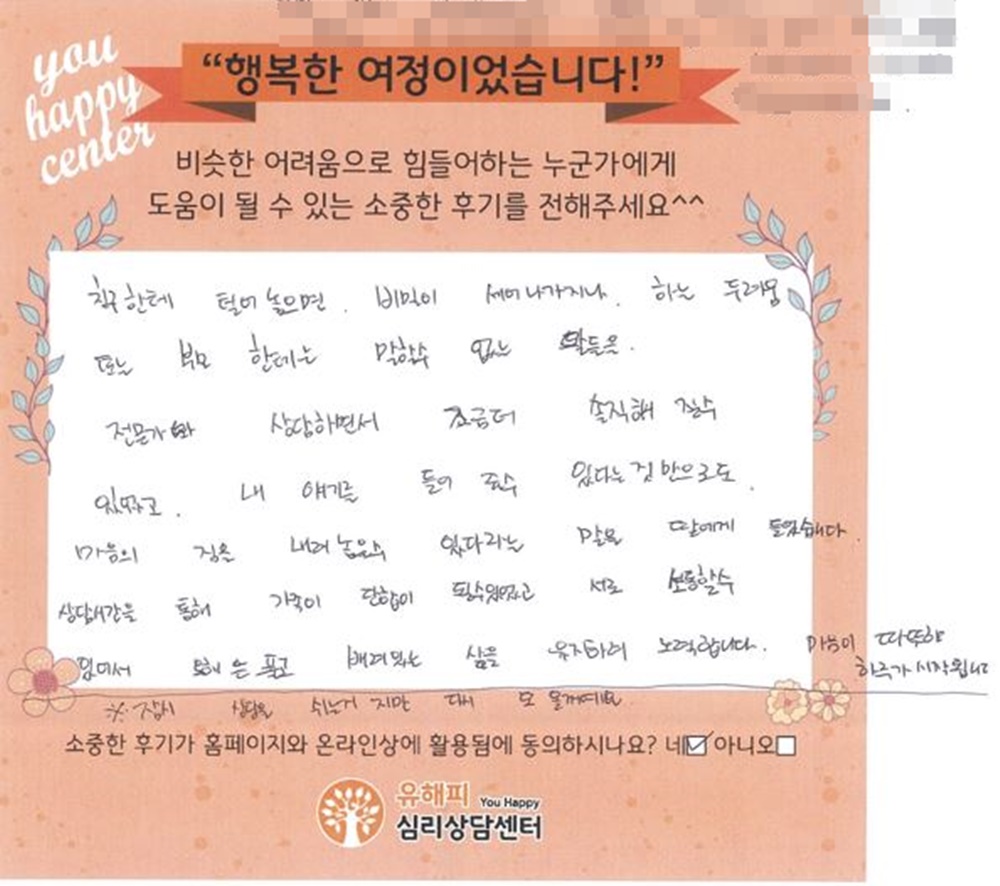 you
happy
center
“행복한 여정이었습니다!”
비슷한 어려움으로 힘들어하는 누군가에게
도움이 될 수 있는 소중한 후기를 전해주세요^^
친구한테 털어 놓으면. 비밀이 세어나가지나. 하는 두려움
또는 부모 한테는 말할수 없는 말들을.
전문가와 상담하면서 조금더 솔직해 질수
있었고. 내 얘기를 들어 줄수 있다는것 만으로도.
마음의 짐을 내려 놓을수 있다라는 말을 딸에게 들었습니다.
상담시간을 통해 가족이 단합이 될수있었고 서로 소통할수
있어서 오해 는 풀고 배려있는 삶을 유지하려 노력합니다. 마음이 따뜻한
하루가 시작됩니다
※ 잠시 상담을 쉬는거 지만 다시 또 올꺼예요.
소중한 후기가 홈페이지와 온라인상에 활용됨에 동의하시나요? 네 아니오
유해피 You Happy
심리상담센터